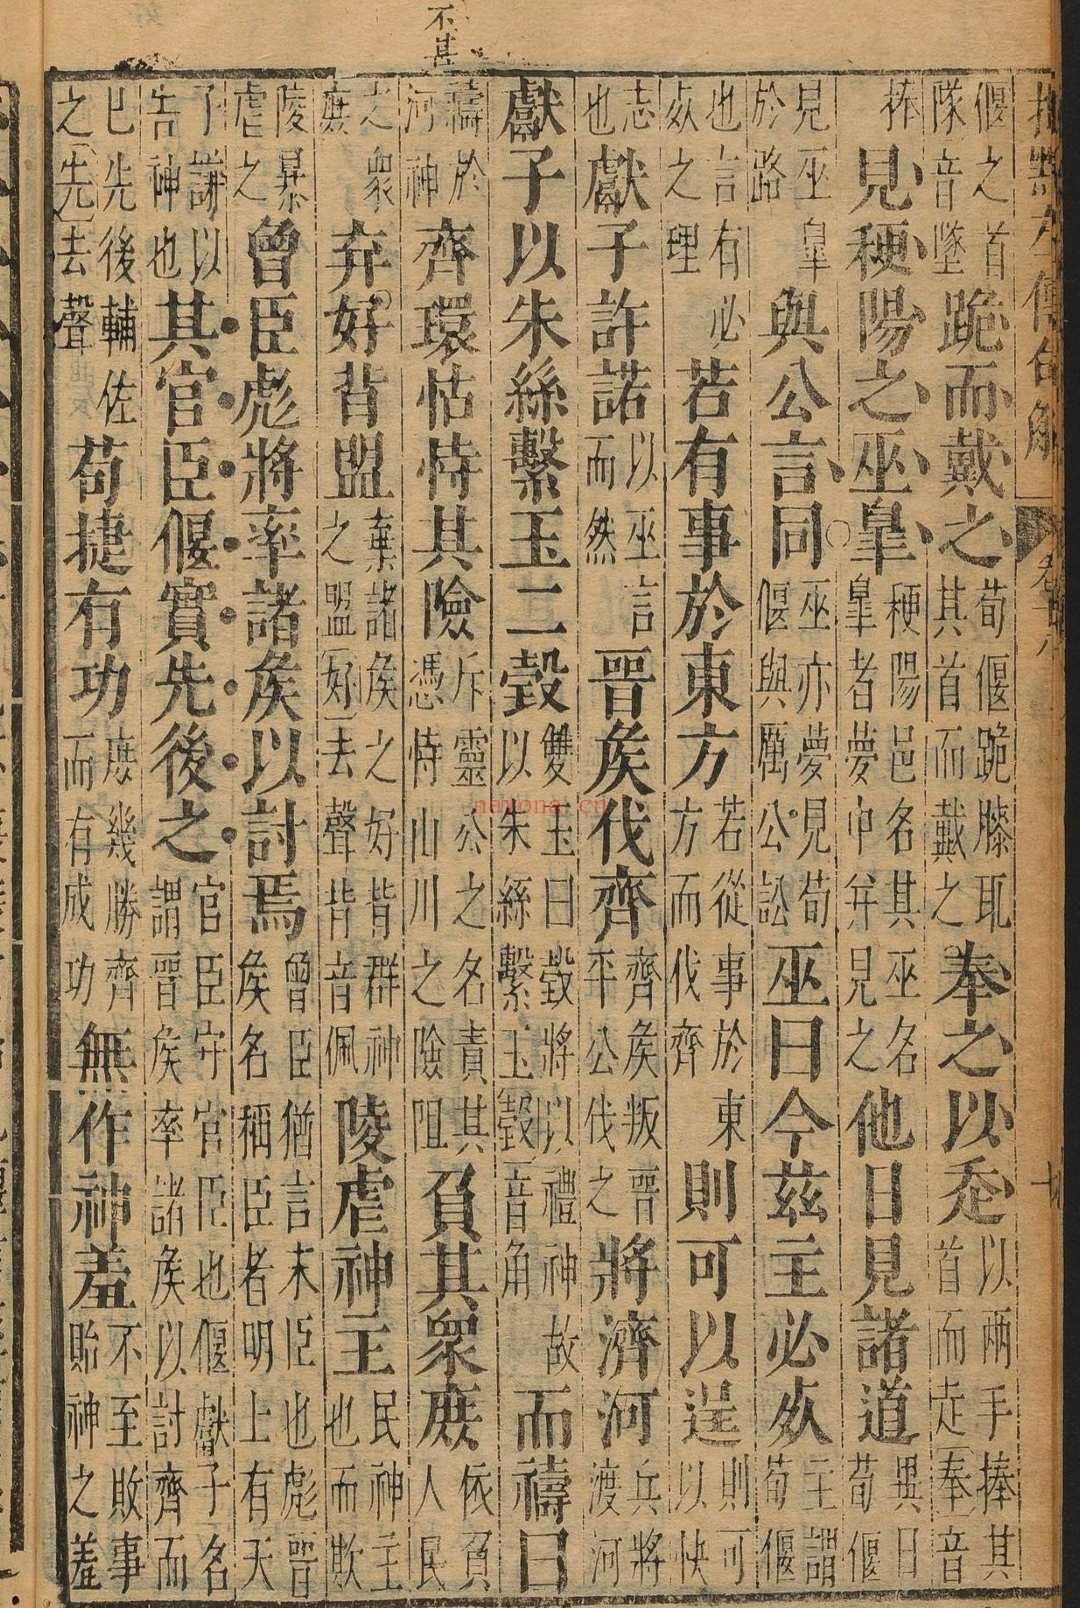 不甚
偃之首隊音墜跪而戴之荀偃跪膝取其首而戴之奉之以走以兩手捧其首而走奉音
捧見梗陽之巫臯梗陽邑名其巫名臯者夢中幷見之他日見諸道異日荀偃
見巫臯於路與公言同巫亦夢見荀偃與厲公訟巫曰今兹主必死主謂荀偃
也言有必死之理若有事於東方若從事於東方而伐齊則可以逞則可以快
志也獻子許諾以巫言而然晉侯伐齊齊侯叛晉平公伐之將濟河兵將渡河
獻子以朱絲繫玉二瑴雙玉曰瑴將以禮神故以朱絲繫玉瑴音角而禱曰
禱於河神齊環怙恃其險斥靈公之名責其憑恃山川之險阻負其衆庶依負人民
之衆庶弃好背盟棄諸侯之好背群神之盟好去聲背音佩陵虐神主民神主也而欺
陵暴虐之曾臣彪將率諸侯以討焉曾臣猶言末臣也彪晉侯名稱臣者明上有天
子謙以告神也其官臣偃實先後之官臣守官臣也偃獻子名謂晉侯率諸侯以討齊而
已先後輔佐之先去聲苟捷有功庶幾勝齊而有成功無作神羞不至敗事貽神之羞
nayona.cn